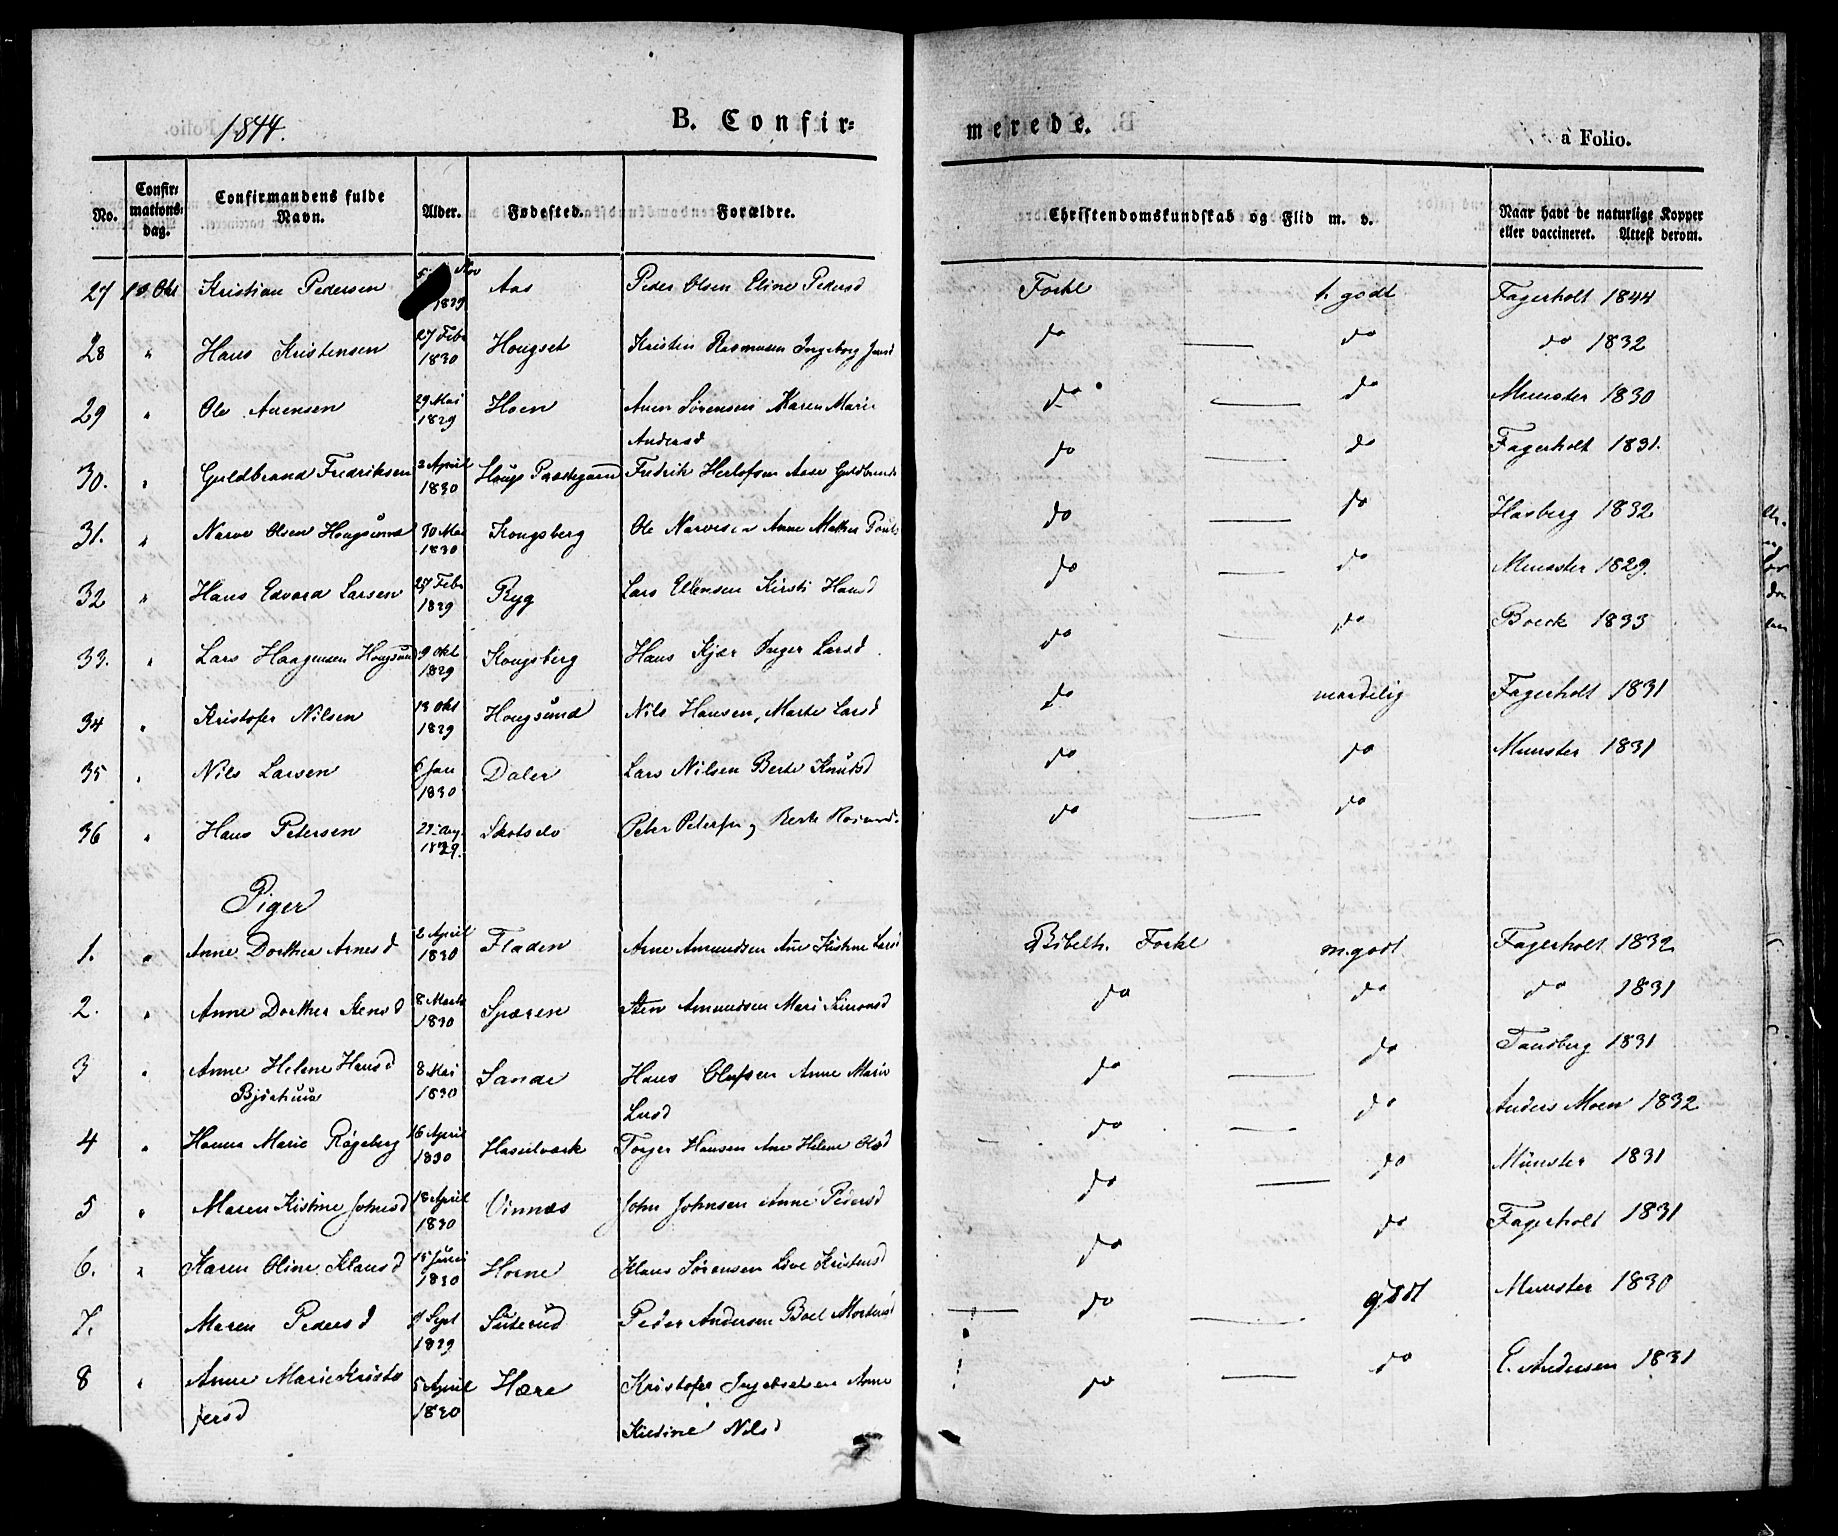 1844.
B. Confir=
merede.
a Folio.
No. Confir= mations= dag. Confirmandens fulde Navn. Alder. Fødested. Forældre. Christendomskundskab og Flid m. v. Naar havt de naturlige Kopper eller vaccineret. Attest derom.
27 Okt Kristian Pedersen Nov 1829 Aas Peder Olsen Eline Pedersd Forkl t. godt Fagerholt 1844
28 " Hans Kristensen 27 Febr 1830 Hougset Kristen Rasmusen Ingeborg Jensd do do do 1832
29 " Ole Anensen 29 Mai 1829 Hoen Anen Sørensen Karen Marie
Andersd do do Munster 1830
30. " Guldbrand Fredriksen 2 April 1830 Hougs Præstegaard Fredrik Herlofsen Aase Guldbrands do do Fagerholt 1831.
31. " Narve Olsen Hougsund 30 Mai 1830 Kongsberg Ole Narvesen Anne Mathea do do Hasberg 1832
32 " Hans Edvard Larsen 27 Febr 1829 Ryg Lars Ellensen Kirsti Hansd do do Munster 1829.
33. " Lars Haagensen Hougsund 9 Okt 1829 Kongsberg Hans Kjær Inger Larsd do do Boeck 1833
34 " Kristofer Nilsen 13 Okt 1829 Hougsund Nils Hansen, Marte Larsd do maadelig Fagerholt 1831
35 " Nils Larsen 6 Jan 1830 Daler Lars Nilsen Berte Knudsd do do Munster 1831
36 " Hans Petersen 1829. Skotselv Peter Petersen Berte do do
Piger
1. " Anne Dorthea Arnesd 2 April 1830 Fladen Arne Amundsen Ane Kistine Larsd Bibelh. Forkl m. godt Fagerholt 1832
2. " Anne Dorthea Stensd 8 Marts 1830 Spæren Sten Amundsen Mari Simonsd do do do 1831
3 " Anne Helene Hansd 8 Mai 1830 Sande Hans Olufsen Anne Marie do do Tandberg 1831
Larsd
4 " Hanna Marie Røgeberg 16 April 1830 Hasselværk Torger Hansen Ane Helene Olsd do do Anders Moen 1832
5 " Maren Kistine Johnsd 18 April 1830 Vinnæs John Johnsen Anne Pedersd do do Münster 1831
6. " Karen Oline Klausd 15 Juni 1830 Horne Klaus Sørensen Live Kristensd do do Fagerholt 1831
7. Maren Pedersd Sept 1829 Süterud Peder Andersen Boel Mortensd do godt Munster 1830
8 " Anne Marie Kristo
fersd 5 April 1830 Hære Kristofer Ingebretsen Anne
Kirstine Nilsd do do E. Andersen 1831